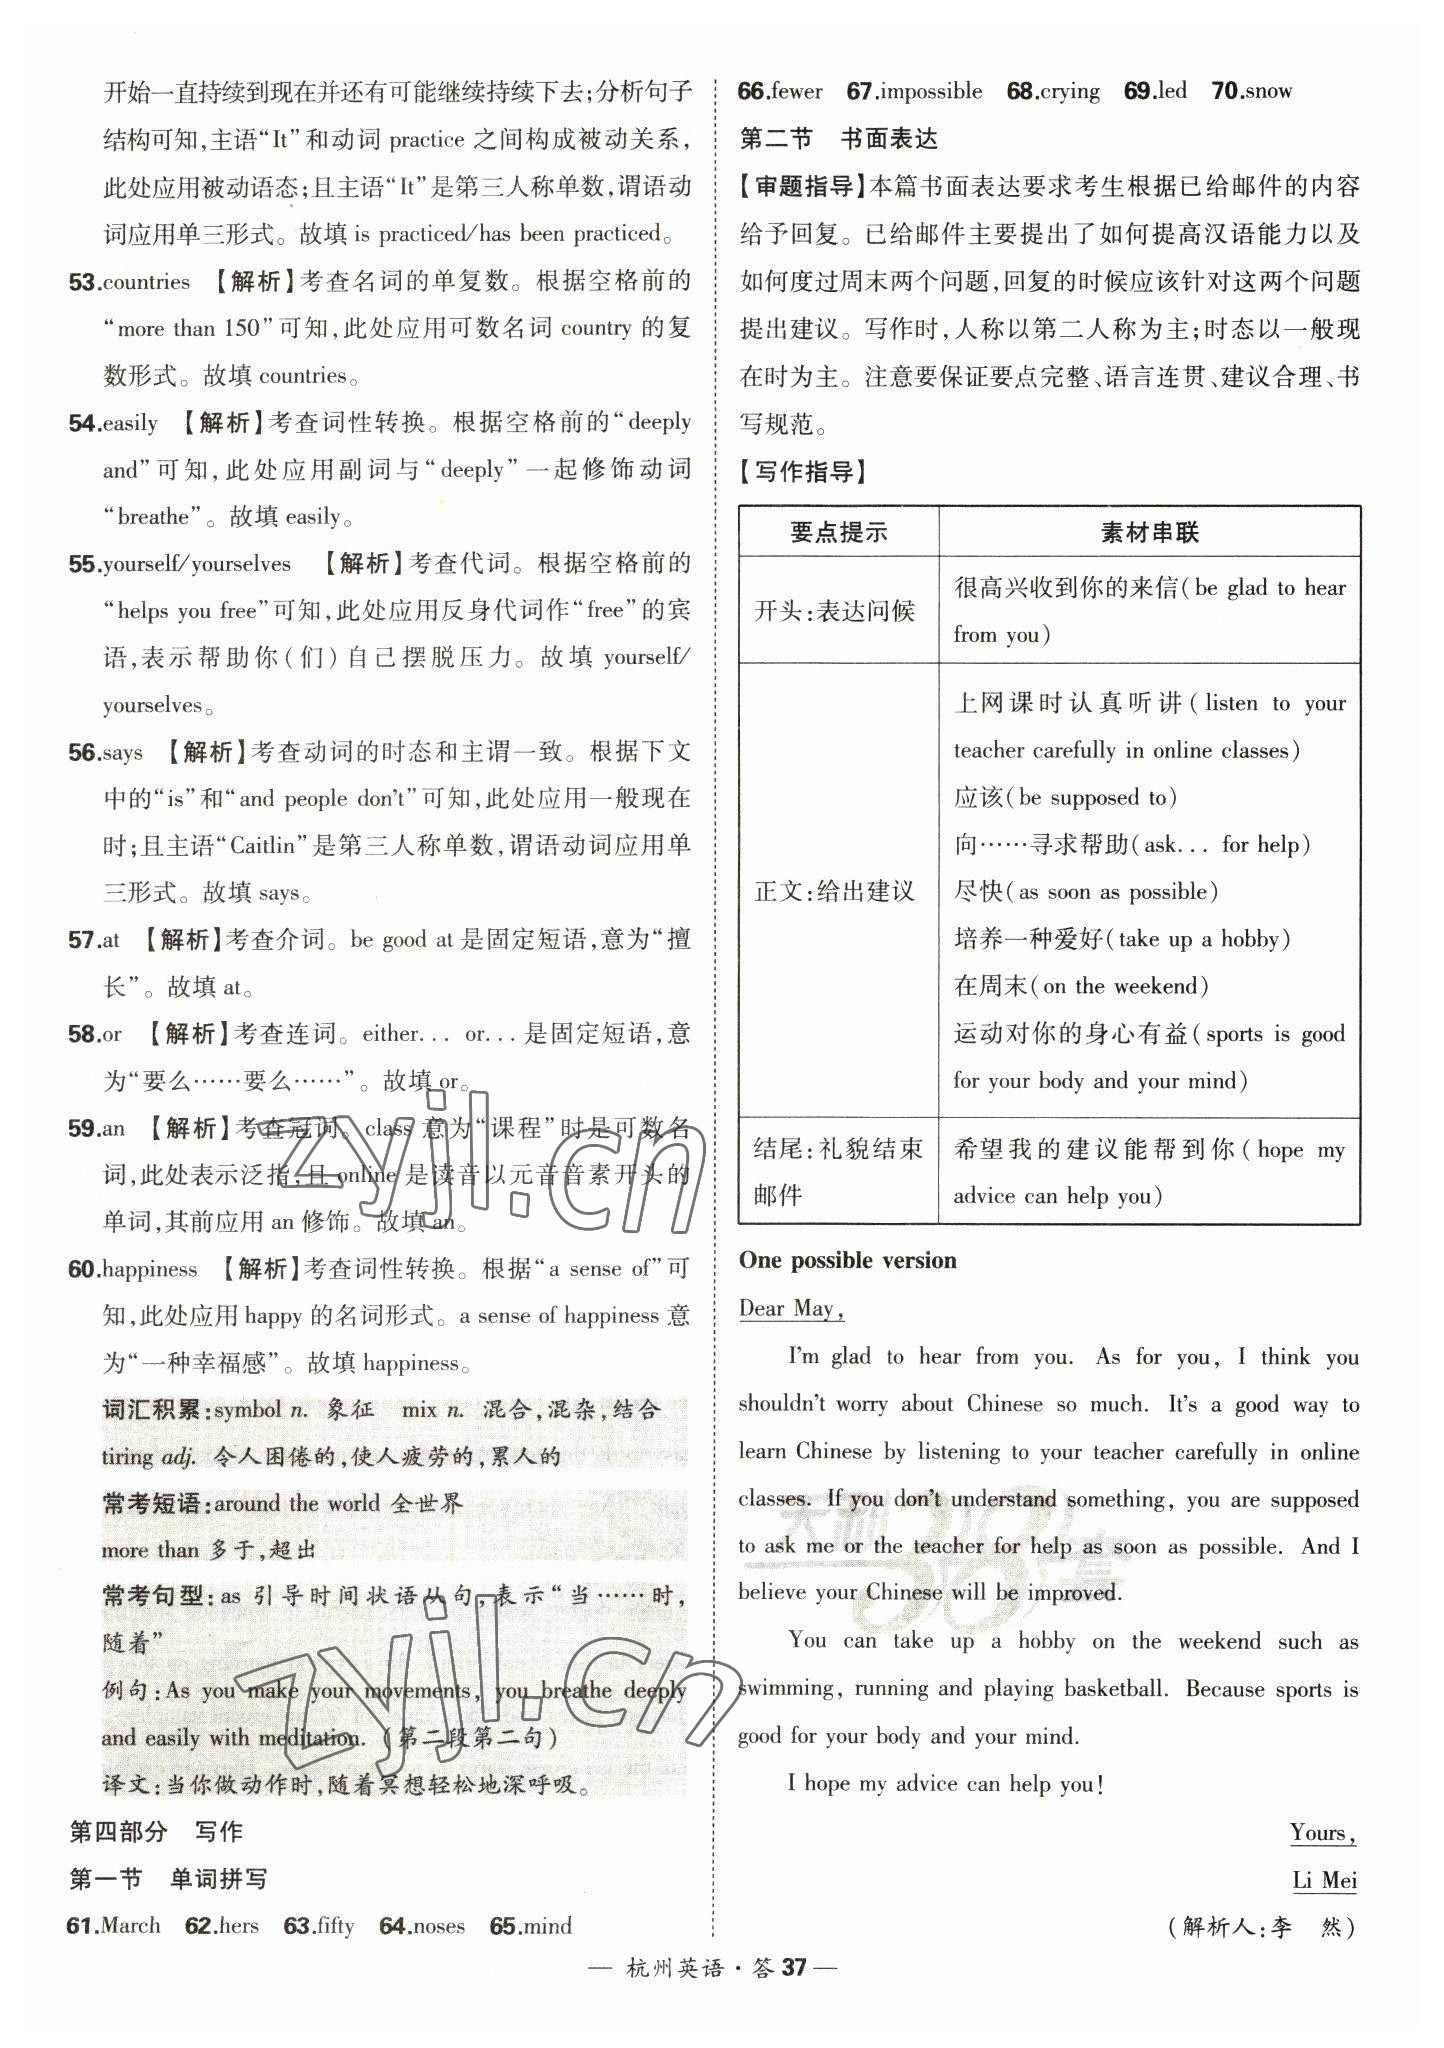 开始一直持续到现在并还有可能继续持续下去;分析句子
结构可知,主语“It”和动词 practice 之间构成被动关系,
此处应用被动语态;且主语“It”是第三人称单数,谓语动
词应用单三形式。故填 is practiced/has been practiced。
53.countries 【解析】考查名词的单复数。根据空格前的
“more than 150”可知,此处应用可数名词 country 的复
数形式。故填 countries。
54.easily 【解析】考查词性转换。根据空格前的“deeply
and”可知,此处应用副词与“deeply”一起修饰动词
“breathe”。故填 easily。
55.yourself/yourselves 【解析】考查代词。根据空格前的
“helps you free”可知,此处应用反身代词作“free”的宾
语,表示帮助你(们)自己摆脱压力。故填 yourself/
yourselves。
56.says 【解析】考查动词的时态和主谓一致。根据下文
中的“is”和“and people don't”可知,此处应用一般现在
时;且主语“Caitlin”是第三人称单数,谓语动词应用单
三形式。故填 says。
57.at 【解析】考查介词。be good at 是固定短语,意为“擅
长”。故填 at。
58.or 【解析】考查连词。either... or... 是固定短语,意
为“要么……要么……”。故填 or。
59.an 【解析】考查冠词。class 意为“课程”时是可数名
词,此处表示泛指,且 online 是读音以元音音素开头的
单词,其前应用 an 修饰。故填 an。
60.happiness 【解析】考查词性转换。根据“a sense of”可
知,此处应用 happy 的名词形式。a sense of happiness 意
为“一种幸福感”。故填 happiness。
词汇积累:symbol n. 象征 mix n. 混合,混杂,结合
tiring adj. 令人困倦的,使人疲劳的,累人的
常考短语:around the world 全世界
more than 多于,超出
常考句型:as 引导时间状语从句,表示“当……时,
随着”
例句:As you make your movements, you breathe deeply
and easily with meditation.(第二段第二句)
译文:当你做动作时,随着冥想轻松地深呼吸。
第四部分 写作
第一节 单词拼写
61.March 62.hers 63.fifty 64.noses 65.mind
66.fewer 67.impossible 68.crying 69.led 70.snow
第二节 书面表达
【审题指导】本篇书面表达要求考生根据已给邮件的内容
给予回复。已给邮件主要提出了如何提高汉语能力以及
如何度过周末两个问题,回复的时候应该针对这两个问题
提出建议。写作时,人称以第二人称为主;时态以一般现
在时为主。注意要保证要点完整、语言连贯、建议合理、书
写规范。
【写作指导】
要点提示 素材串联
开头:表达问候
很高兴收到你的来信(be glad to hear
from you)
正文:给出建议
上网课时认真听讲(listen to your
teacher carefully in online classes)
应该(be supposed to)
向……寻求帮助(ask... for help)
尽快(as soon as possible)
培养一种爱好(take up a hobby)
在周末(on the weekend)
运动对你的身心有益(sports is good
for your body and your mind)
结尾:礼貌结束
邮件
希望我的建议能帮到你(hope my
advice can help you)
One possible version
Dear May,
I'm glad to hear from you. As for you, I think you
shouldn't worry about Chinese so much. It's a good way to
learn Chinese by listening to your teacher carefully in online
classes. If you don't understand something, you are supposed
to ask me or the teacher for help as soon as possible. And I
believe your Chinese will be improved.
You can take up a hobby on the weekend such as
swimming, running and playing basketball. Because sports is
good for your body and your mind.
I hope my advice can help you!
Yours,
Li Mei
(解析人:李 然)
— 杭州英语·答37 —
zyjl.cn
zyjl.cn
天利38套